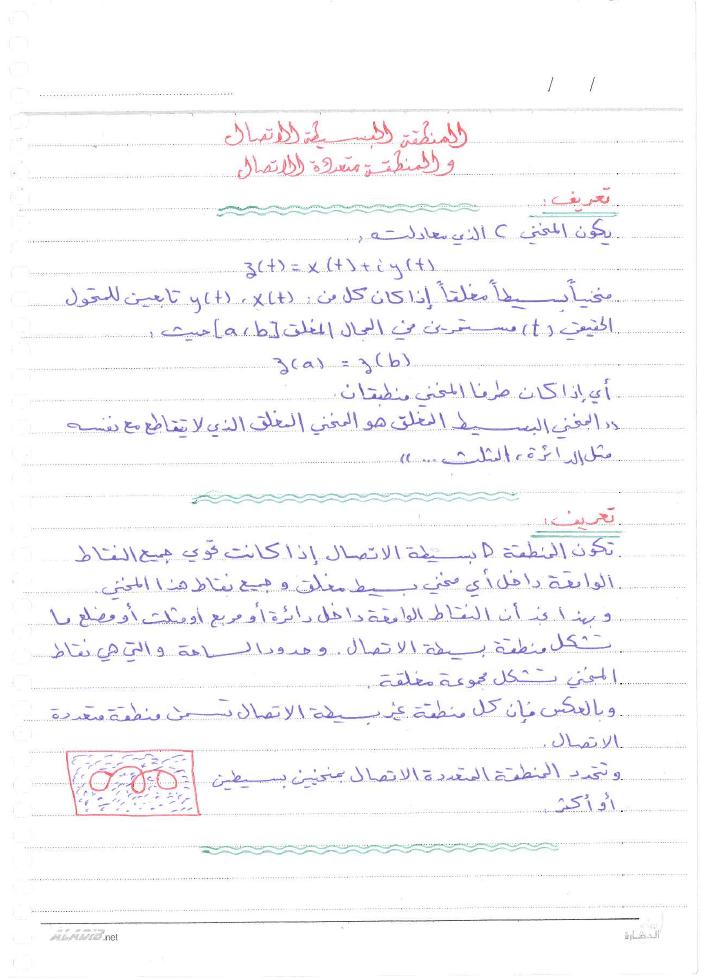 / /
المنطقة البسيطة الاتصال
والمنطقة متعددة الاتصال
تعريف:
يكون المنحني C الذي معادلته,
z(t) = x(t) + i y(t)
منحنياً بسيطاً مغلقاً إذا كان كل من: x(t) ، y(t) تابعين للمتحول
الحقيقي (t) مستمرين في المجال المغلق [a,b] حيث:
z(a) = z(b)
أي إذا كان طرفا المنحني منطبقان.
"المنحني البسيط المغلق هو المنحني المغلق الذي لا يتقاطع مع نفسه
مثل الدائرة، المثلث ... "
تعريف:
تكون المنطقة D بسيطة الاتصال إذا كانت تحوي جميع النقاط
الواقعة داخل أي منحني بسيط مغلق و جميع نقاط هذا المنحني.
و بهذا نجد أن النقاط الواقعة داخل دائرة أو مربع أو مثلث أو مضلع ما
تشكل منطقة بسيطة الاتصال. و حدود الساحة والتي هي نقاط
المنحني تشكل مجموعة مغلقة.
وبالعكس فإن كل منطقة غير بسيطة الاتصال تسمى منطقة متعددة
الاتصال.
وتتحدد المنطقة المتعددة الاتصال بمنحنيين بسيطين
أو أكثر.
ALADIB.net